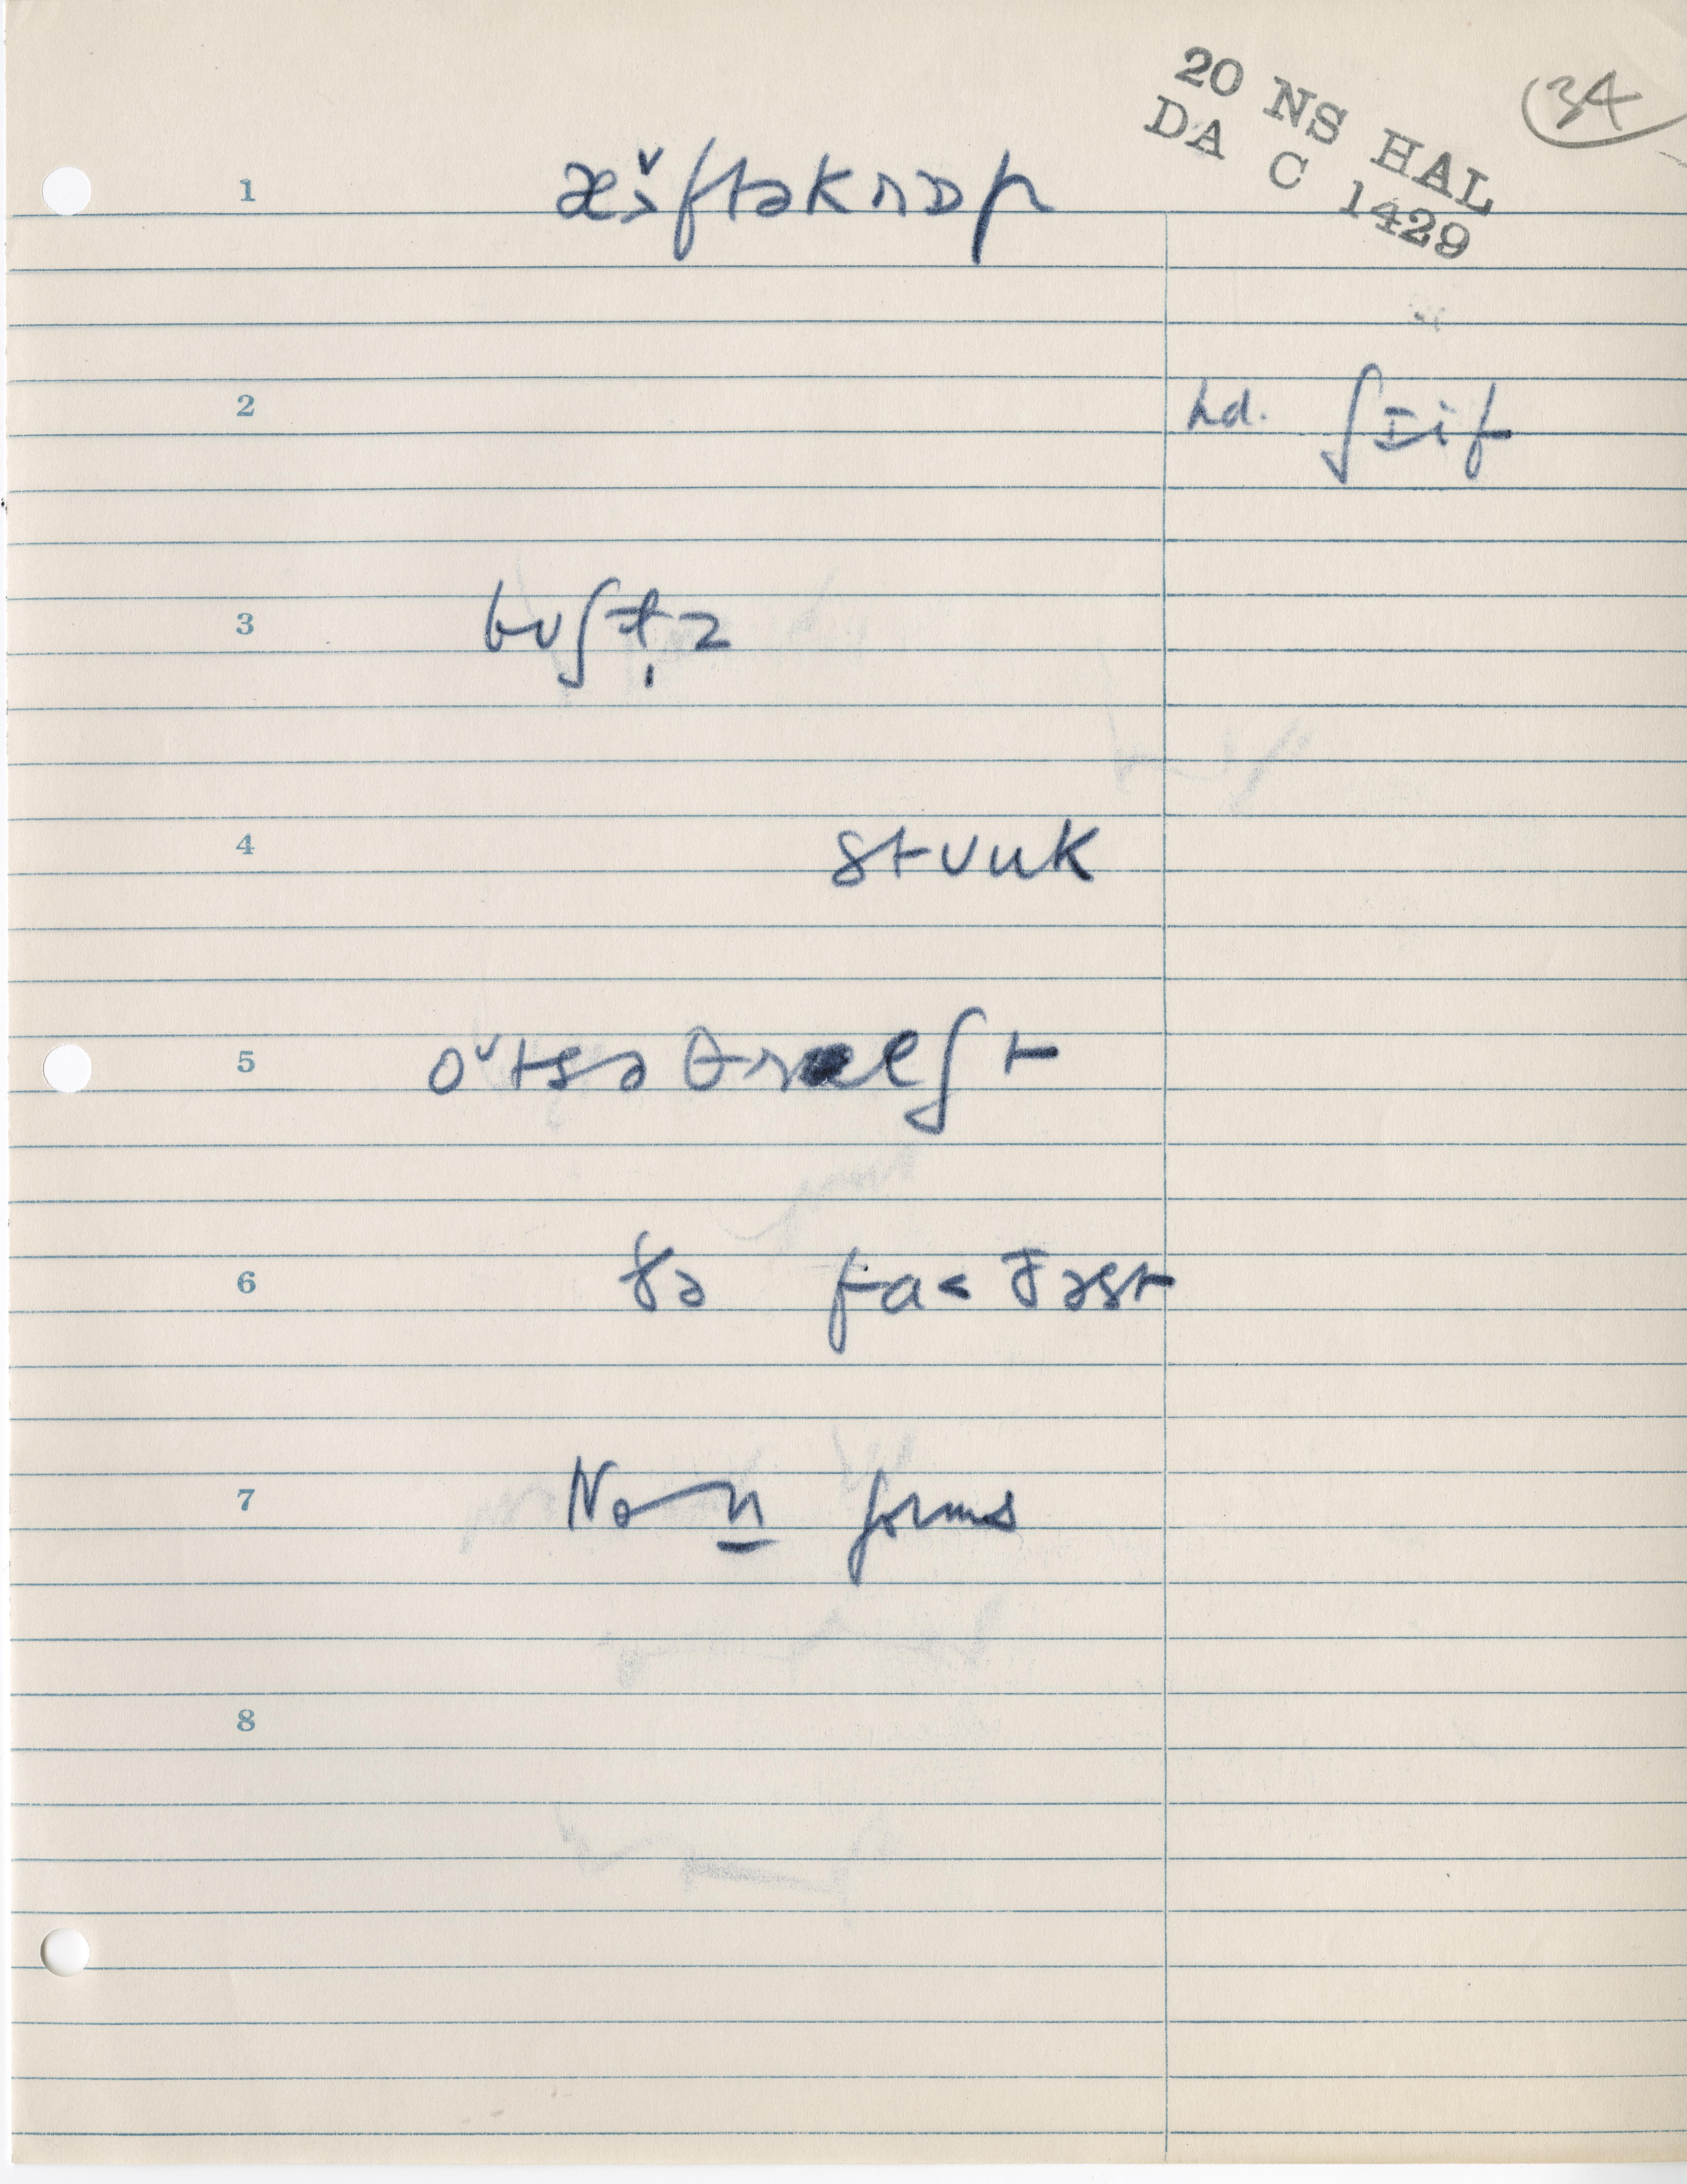 20 NS HAL
DA C 1429
34
1 æˇ>ftəkrɒp
2 hd. ʃɪif
3 bʊʃɫ̩z
4 stʊuk
5 oˇtsəθreʃt
6 ðə fa<ðəst
7 No n forms
8